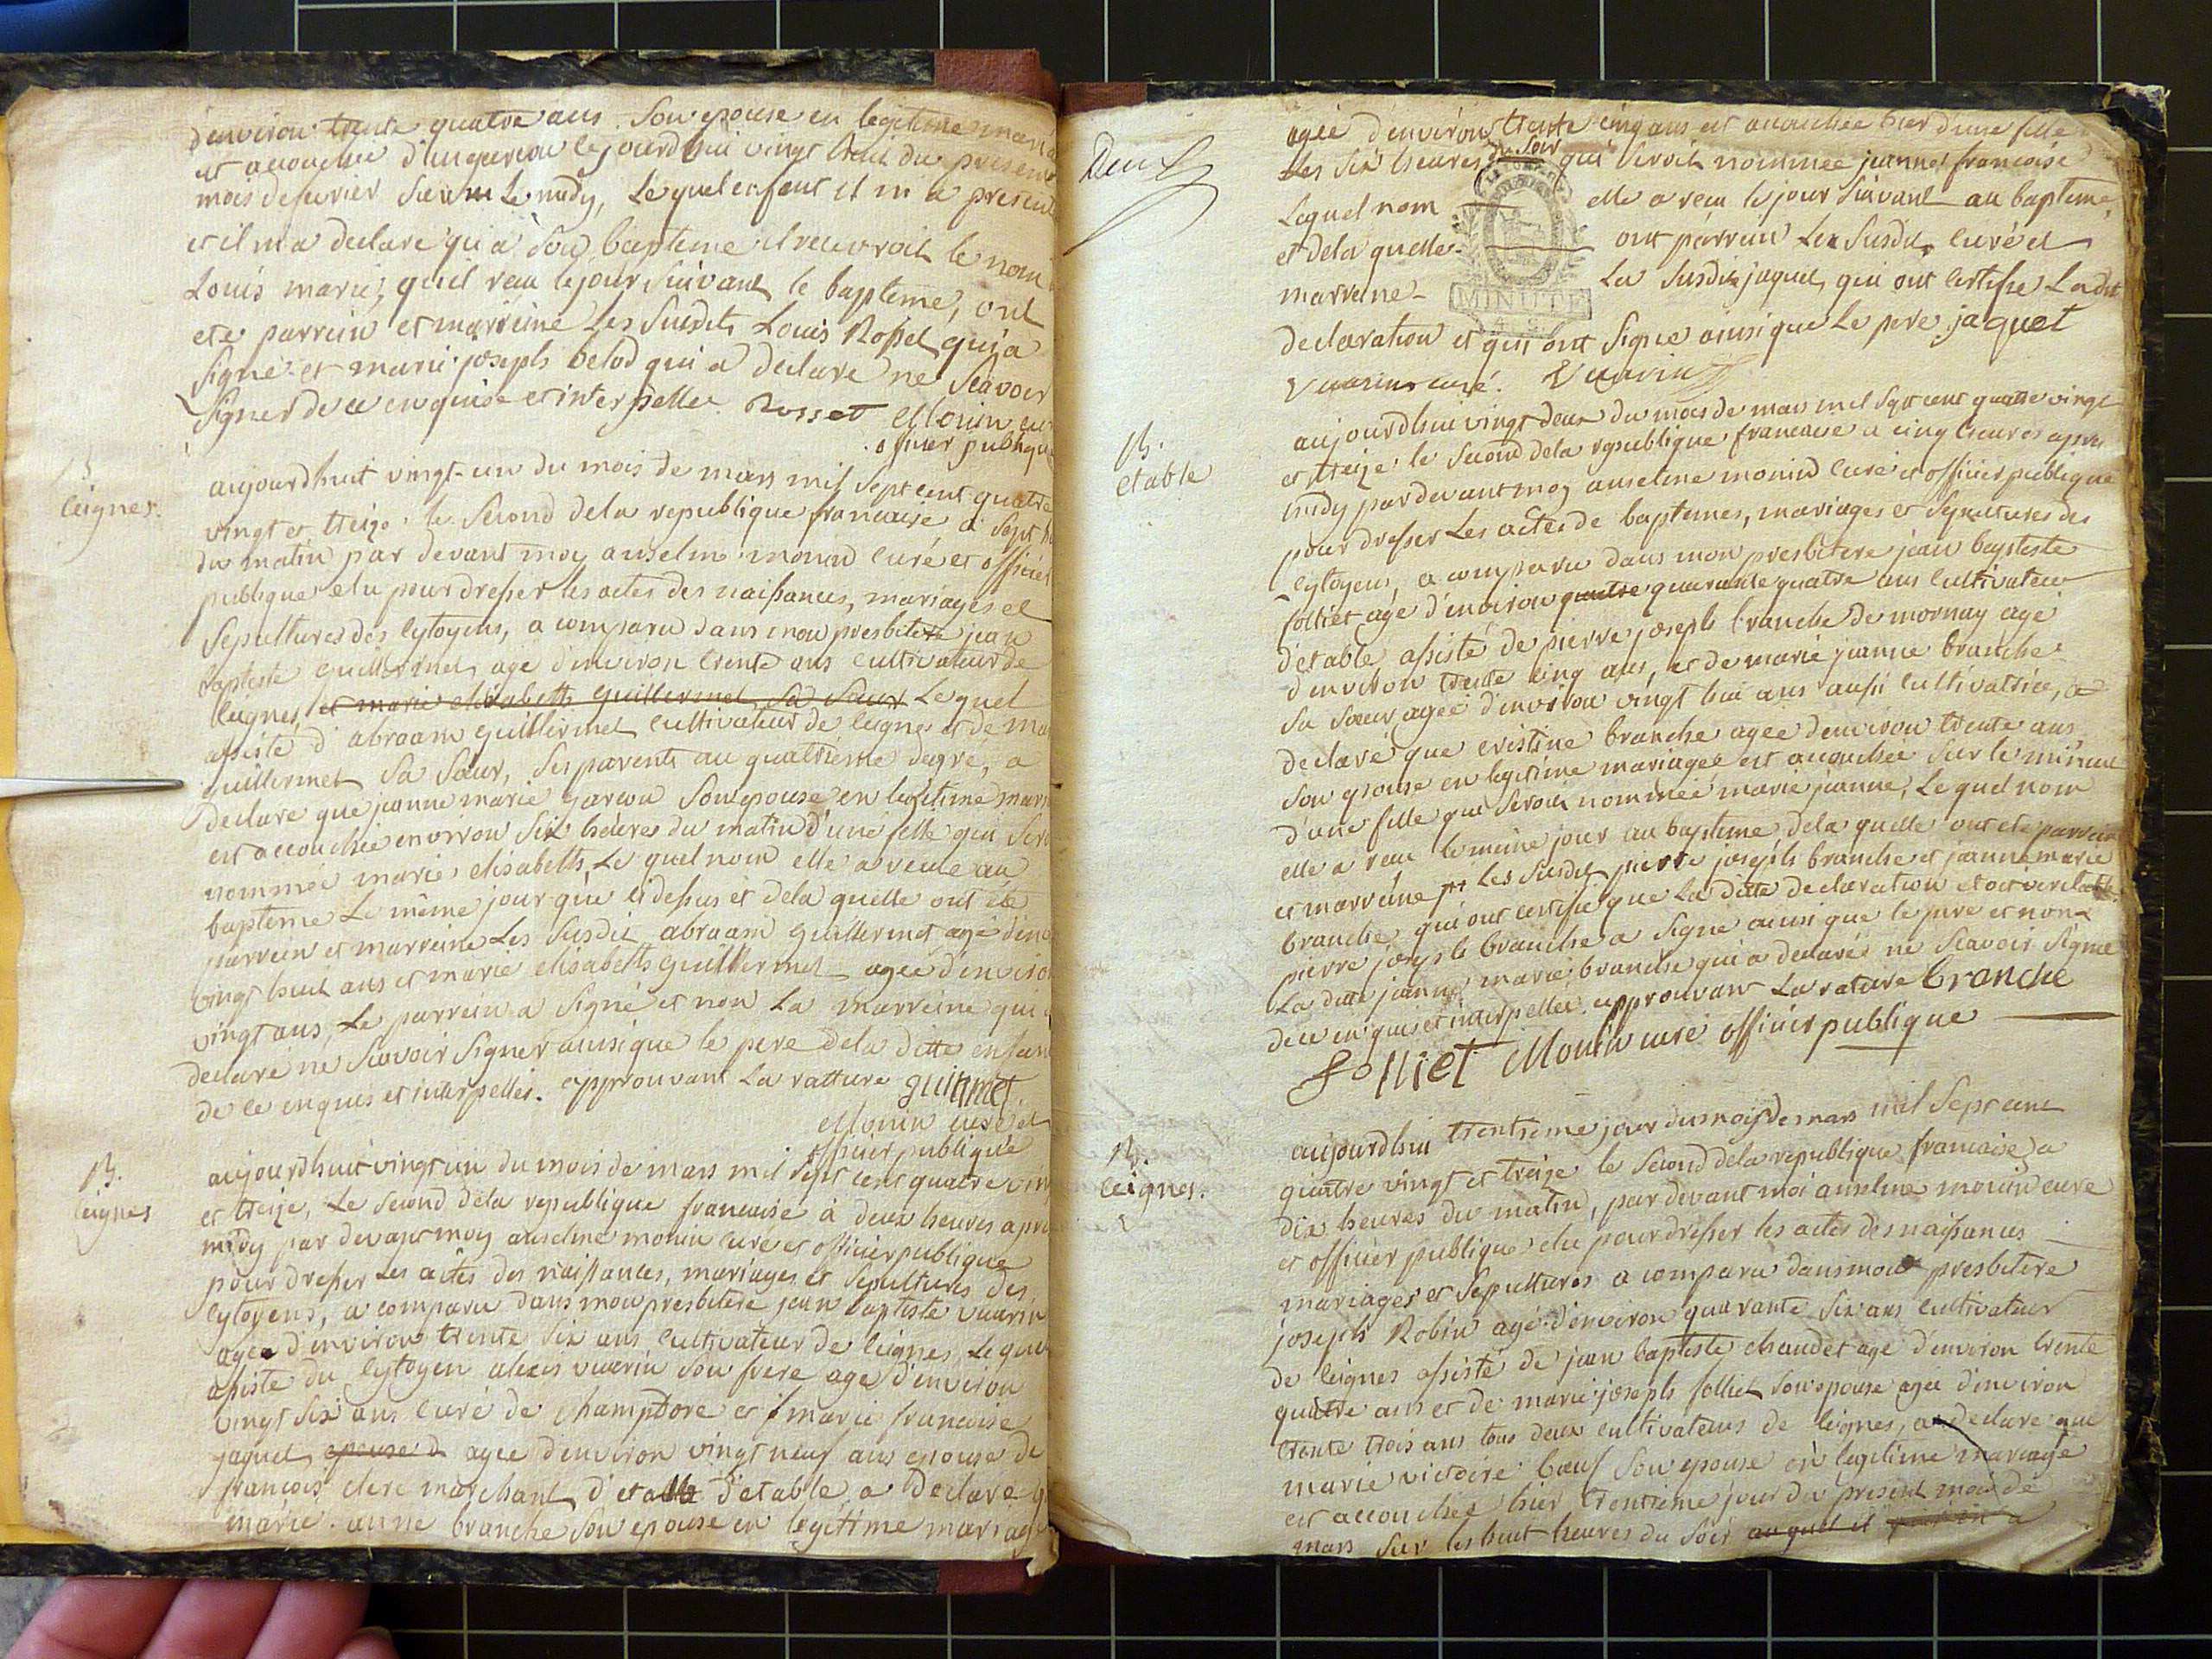 d'environ trente quatre ans son epouse en legitime
est accouchée d'un garcon le jourd'hui vingt huit du present
mois de fevrier sur le midy, lequel enfant il m'a presenté
et il m'a declaré qu'a son bapteme il recevroit le nom
Louis marie, qu'il recu le jour suivant le bapteme, ont
eté parrein et marreine les susdits Louis Rosset qui a
signé et marie joseph belod qui a declaré ne scavoir
signer de ce enquise et interpellée. Rosset Monin
officier publique
B.
leignes.
aujourdhuit vingt-un du mois de mars mil sept cent quatre
vingt et treize le second de la republique francaise a sept
du matin par devant moy anselme monin curé et officier
publique elu pour dresser les actes des naissances, mariages et
sepultures des cytoyens, a comparu dans mon presbitere jean
baptiste guillermet agé d'environ trente ans cultivateur de
leignes, et marie elisabeth guillermet sa soeur Lequel
assisté d'abraam guillermet cultivateur de leignes et de
guillermet sa soeur, ses parents au quatrieme degré, a
declaré que jeanne marie garcon son epouse en legitime
est accouchée environ six heures du matin d'une fille qui
nommée marie elisabeth, Le quel nom elle a recue au
bapteme le même jour que cidessus et dela quelle ont été
parrein et marreine Les susdit abraam guillermet agé
vingt huit ans et marie elisabeth guillermet agée d'environ
vingt ans, Le parrein a signé et non La marreine qui
declaré ne scavoir signer ainsi que le pere dela ditte
de ce enquis et interpellés. approuvant La ratture
Monin curé et
officier publique
B.
leignes
aujourdhuit vingt un du mois de mars mil sept cent quatre
et treize, Le second dela republique francaise à deux heures
midy par devant moy anselme monin curé et officier publique
pour dresser Les actes des naissances, mariages et sepultures des
cytoyens, a comparu dans mon presbitere jean baptiste vuarin
agée d'environ trente six ans cultivateur de leignes, Le quel
assisté du cytoyen alexis vuarin son frere agé d'environ
vingt six ans curé de champdore et marie francoise
jaquet epouse d agée d'environ vingt neuf ans epouse de
francois clerc marchant d'etable d'etable a declaré
marie anne branche son epouse en legitime
agée d'environ trente cinq ans est accouchée hier d'une fille
les six heures du soir qui seroit nommée jeanne francoise
Lequel nom elle a recu le jour suivant au bapteme,
et dela quelle ont parrein Les susdit curé et
marreine La susdite jaquet, qui ont certifié Ladit
declaration et qui ont signé ainsi que Le pere. jaquet
Vuarin curé. Vuarin
MINUTE
B.
etable
aujourdhui vingt deux du mois de mars mil sept cent quatre vingt
et treize le second dela republique francaise a cinq heures apres
midy par devant moy anselme monin curé et officier publique
pour dresser Les actes de baptemes, mariages et sepultures des
cytoyens, a comparu dans mon presbitere jean baptiste
folliet agé d'environ quatre quarante quatre ans cultivateur
d'etable, assisté de pierre joseph branche de mornay agé
d'environ trente cinq ans, et de marie jeanne branche
sa soeur agée d'environ vingt hui ans aussi cultivatrice, a
declaré que cristine branche agée d'environ trente ans
son epouse en legitime mariagee est accouchée sur le minuit
d'une fille qui seroit nommée marie jeanne, Le quel nom
elle a recu le meme jour au bapteme, dela quelle ont eté parrein
et marreine Les susdit pierre joseph branche et jeanne marie
branche, qui ont certifié que La ditte declaration etoit veritable.
pierre joseph branche a signé ainsi que le pere et non
La ditte jeanne marie branche qui a declaré ne scavoir signer
de ce enquis et interpellée. approuvant La rature branche
Folliet Monin curé officier publique
B.
leignes.
aujourdhui trentieme jour du mois de mars mil sept cent
quatre vingt et treize le second dela republique francaise, a
dix heures du matin, par devant moi anselme monin curé
et officier publique elu pour dresser les actes des naissances
mariages et sepultures a comparu dans mon presbitere
joseph Robin agé d'environ quarante six ans cultivateur
de leignes assisté de jean baptiste chaudet agé d'environ trente
quatre ans et de marie joseph folliet son epouse agée d'environ
trente trois ans tous deux cultivateurs de leignes, a declaré que
marie victoire boeuf son epouse en legitime mariage
est accouchée hier trentieme jour du present mois de
mars sur les huit heures du soir auquel il